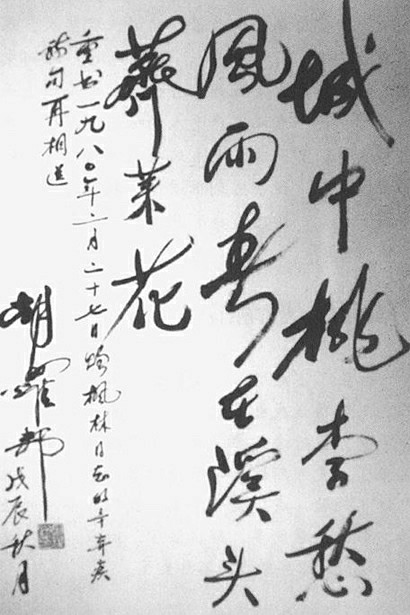 城中桃李愁
風雨春在溪头
荠菜花
重书一九八〇年二月二十七日给楓林同志的辛弃疾
词句再相送
胡耀邦 戊辰秋月